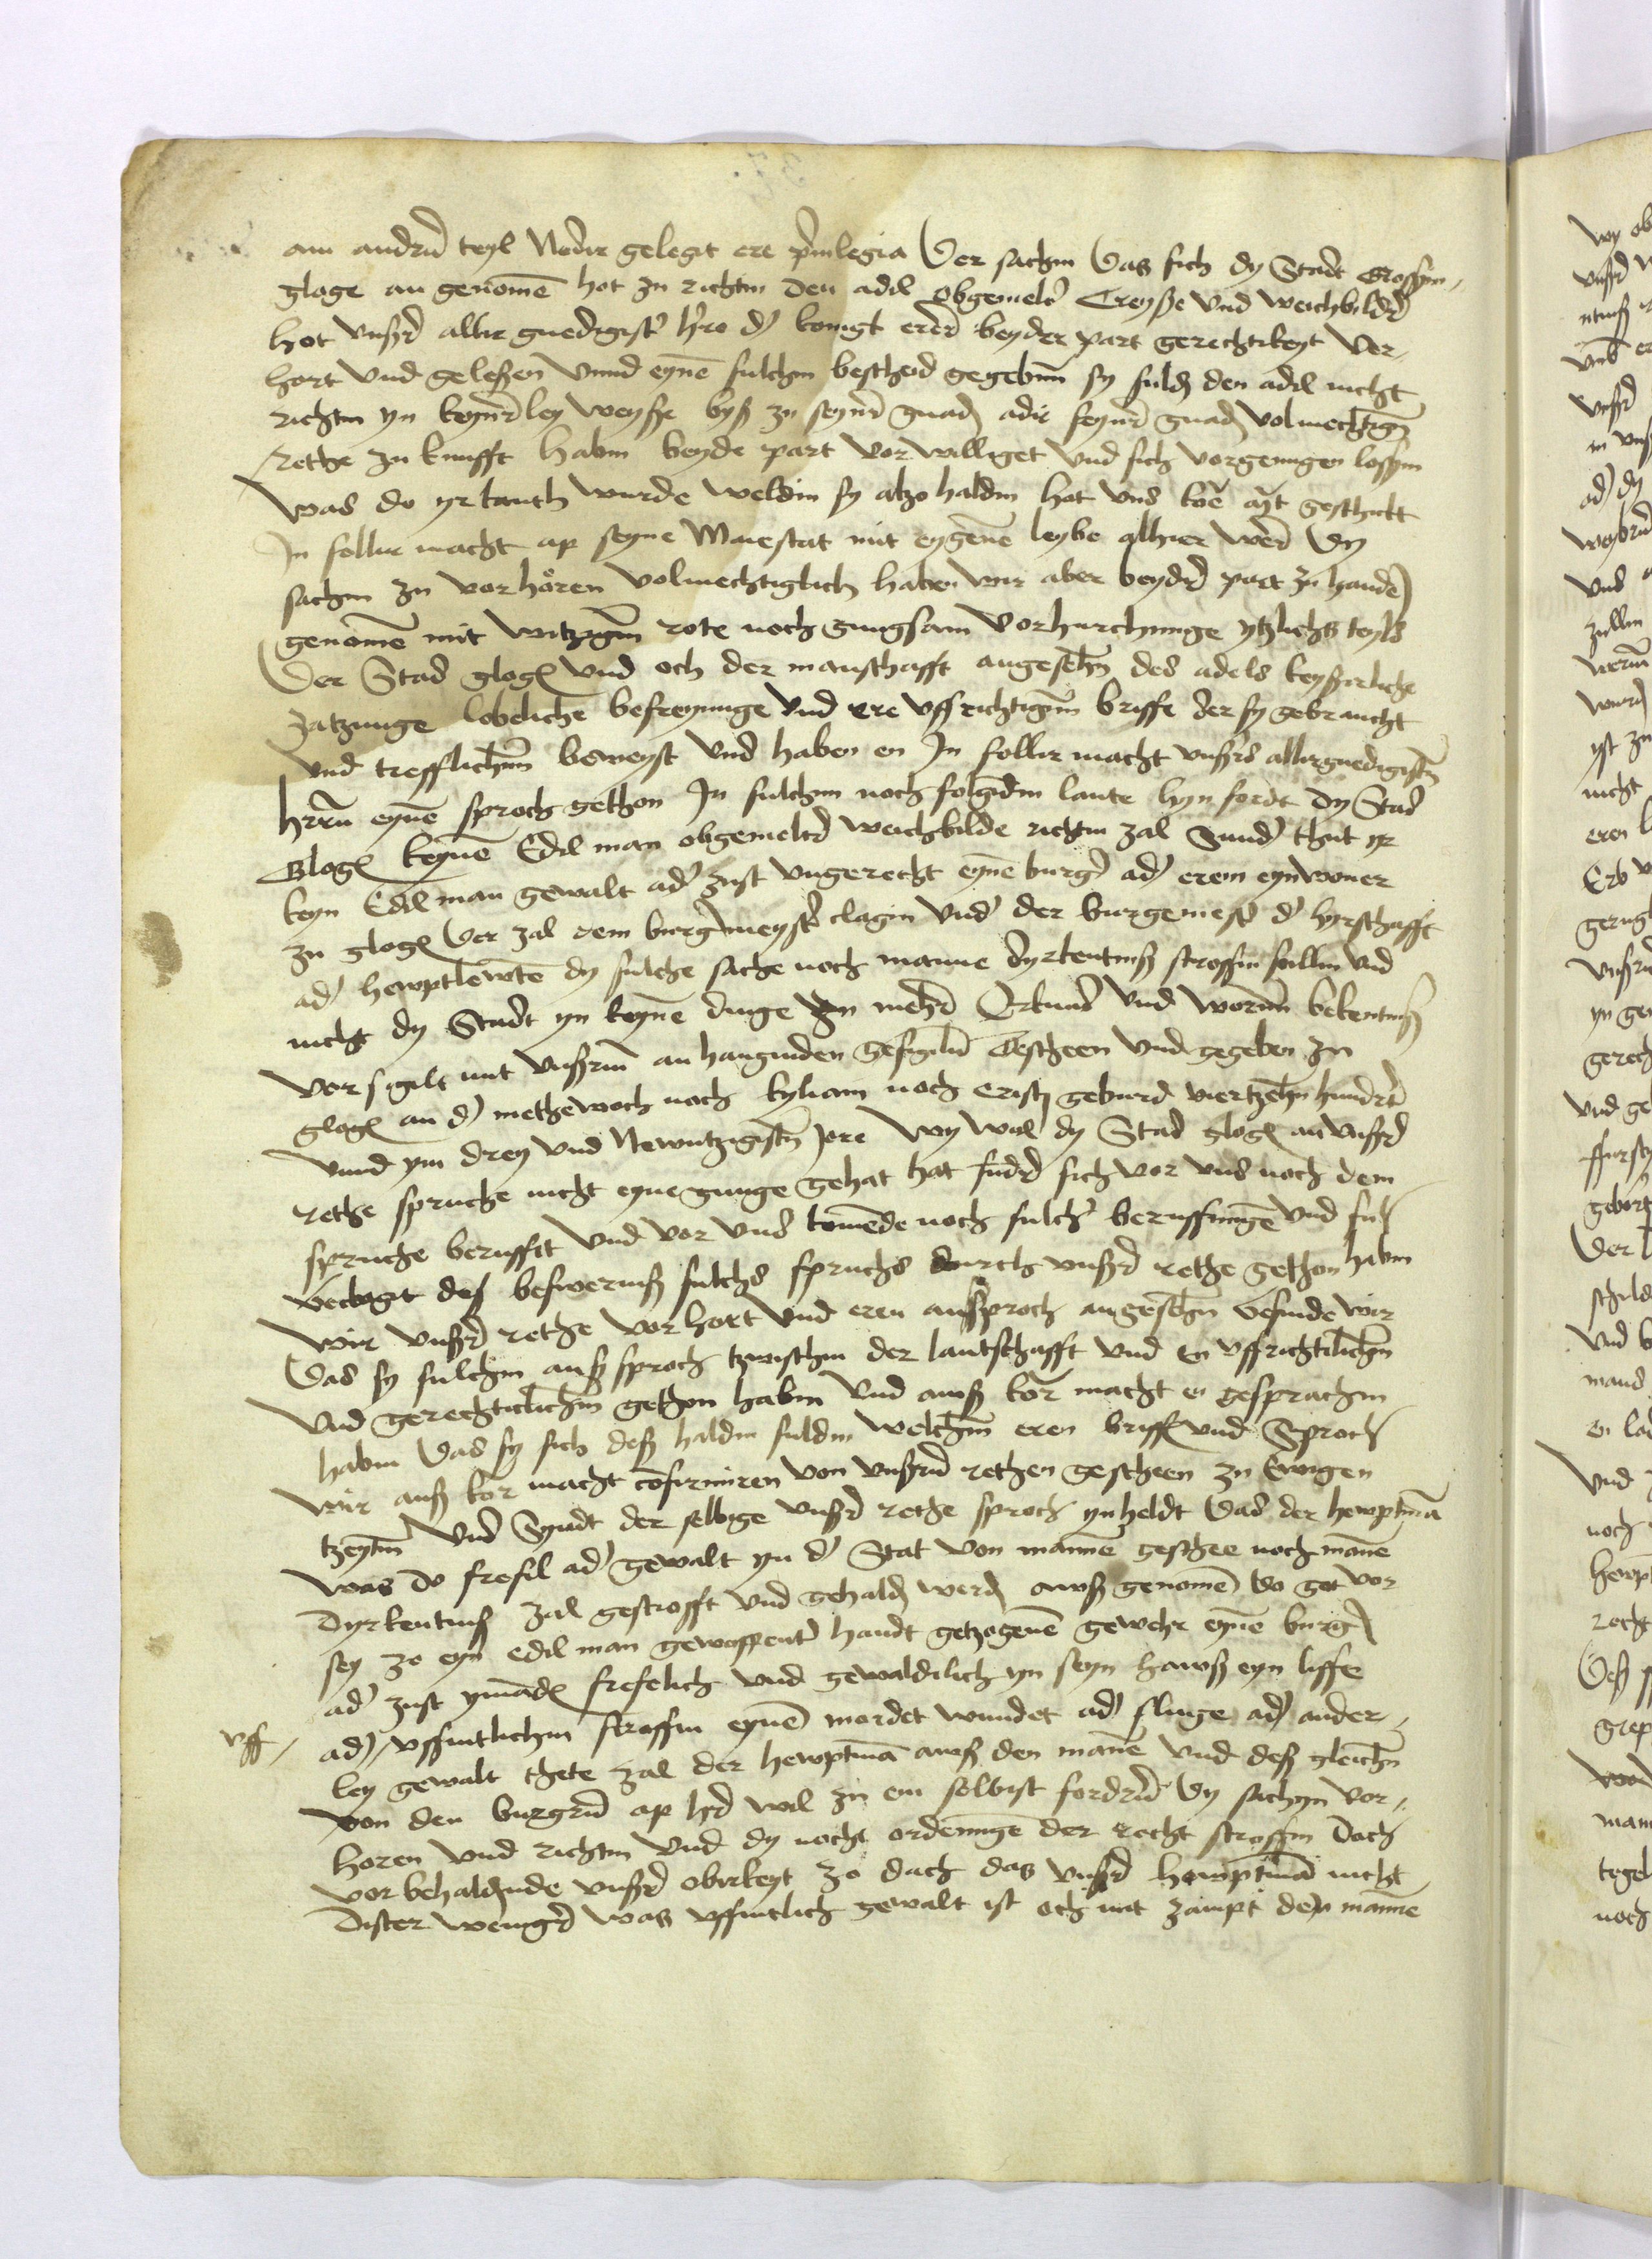 am andrn teyl Nedir gelegt ere privilegia Der sachin Das sich dy Stadt Grossyn
gloge an genome hot zu richtin den adil obgemelt Creysze und weichbildes
hot unszer allir gnedigist her der konigk erer beyder part gerechtikeyt vor
hort und geleszen unnd eyne sulchin bescheid gegebin sy suld den adil nicht
richtin yn keynerley weysze bysz zu seyner gnad adir seyner gnad volmechtign
rethe zu kunfft habin beyde part vorwilliget und sich vorgenugen loszyn
was do yrkanth wurde weldin sy alzo haldin hot uns koe mt geschickt
In foller macht ap seyne Maiestat mit eygene leybe alhier wer Dy
sachin zu vorhören volmechtiglich haben wir aber beyder part zu hande
genome mit witzigin rote noch gnugsam vorhurchunge ytzlichs teyls
Der Stad glogꝭ und och der manschafft angesehn des adels keyszerliche
zatzunge lobeliche befreyunge und ere uffrichtigin briffe der sy gebraucht
und trefflichin beweyst und haben en In follir macht unszers allirgnedigisten
hrrn eyne sproch gethon In sulchin nochfolgidin laute hynfordt dy Stad
Glogꝭ keyne Edil man obgemelter weichbilde richtin zal Sunder thut yr
keyn Edil man gewalt ader zust ungerecht eyne burger ader erem eynwoner
zu glogꝭ Der zal dem burgermeyster clagin Und der burgemester der hyrschafft
ader hewptlewte dy sulche sache noch manne dyrkentnisz stroffin sullin und
nicht dy Stadt yn keyne dinge zu mehr Orkund und worem bekentnisz
vorsigilt mit unszrm an hanginden gesigilu Gescheen und gegeben zu
glogꝭ an der methewoch noch kyliani noch cristi geburd viertzehn hundert
unnd ym drey und Newntzigisten Jore Wy wol dy Stad glogꝭ an unszer
rethe spruche nicht eyne gnuge gehat hat suder sich vor uns noch dem
spruche berufft und vor uns komede noch sulcher beruffunge und sich
beclagit des besweernisz sulchs spruchs durch unszer rethe gethon habin
wir unszer rethe vorhort und eren ausproch angesehn befinde wir
Das sy sulchin ausz sproch tzwischin der lantschafft und en uffrichtiklichn
und gerechticlichin gethon habin und awsz kor macht en gesprachin
habin Das sy sich desz haldin suldin welchin eren briff und Sproch
wir ausz kor macht cofirmiren von unszern rethen gescheen zu ewigen
tzeytin und Syndt der selbige unszer rethe sproch ynheldt Das der hewptma
was do frefil ader gewalt yn der Stat von manne geschee noch mane
dyrkentnisz zal gestrofft und gehald werd awsz genome do got vor
sey zo eyn edil man gewoppenter handt getzogene gewehr eyne burger
ader zust ymadꝭ frefelich und gewaldiklich yn seyn hawsz eyn liffe
uff
ader uffintlichin stroffin eyne mordet wundet ader sluge ader ander
ley gewalt thete zal der hewptma awsz den mane und desz gleichn
von den burgern ap her wil zu em selbist fordern Dy sachyn vor
horen und richtin und dy nocht ordenunge der recht stroffin Doch
vor behaldinde unszer obirkeyt zo dach das unszer hewptma nicht
dister weniger was uffintlich gewalt ist och mit zampt den manne